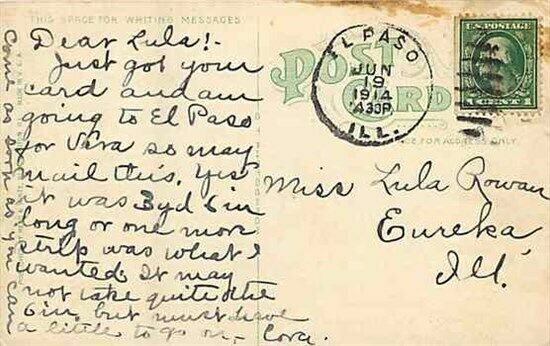 THIS SPACE FOR WRITING MESSAGES
Dear Lula!-
Just got your
card and am
going to El Paso
for Vera so may
mail this, Yes
it was 3 yd 6 in
long or one more
strip was what I
wanted. It may
not take quite the
6 in, but must have
a little to go on,- Cora.
Come as soon as you can
POST CARD
EL PASO
JUN
19
1914
430P
ILL.
U.S. POSTAGE
1 CENT 1
SPACE FOR ADDRESS ONLY
Miss Lula Rowan
Eureka
Ill.